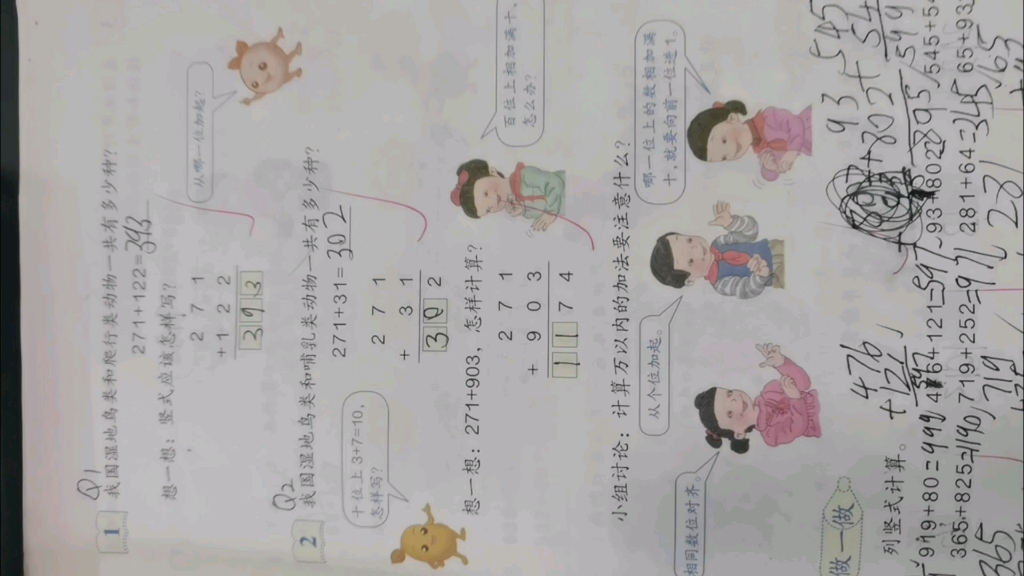 Q1
1 我国湿地鸟类和爬行类动物一共有多少种?
271+122=393
想一想：竖式应该怎样写?
从哪一位加起?
2 7 1
+ 1 2 2
3 9 3
Q2
2 我国湿地鸟类和哺乳类动物一共有多少种?
271+31=302
十位上3+7=10,
怎样写?
2 7 1
+ 3 1
3 0 2
想一想：271+903,怎样计算?
百位上相加满十,
怎么办?
2 7 1
+ 9 0 3
1 1 7 4
小组讨论：计算万以内的加法要注意什么?
相同数位对齐。
从个位加起。
哪一位上的数相加满
十,就要向前一位进1。
做一做
列竖式计算。
476
+121
93
+802
895
545
+54
599
919+80=999
476+121=597
93+802=895
545+54
365+825=1190
719+252=971
281+64=345
65+93
365
719
281
65